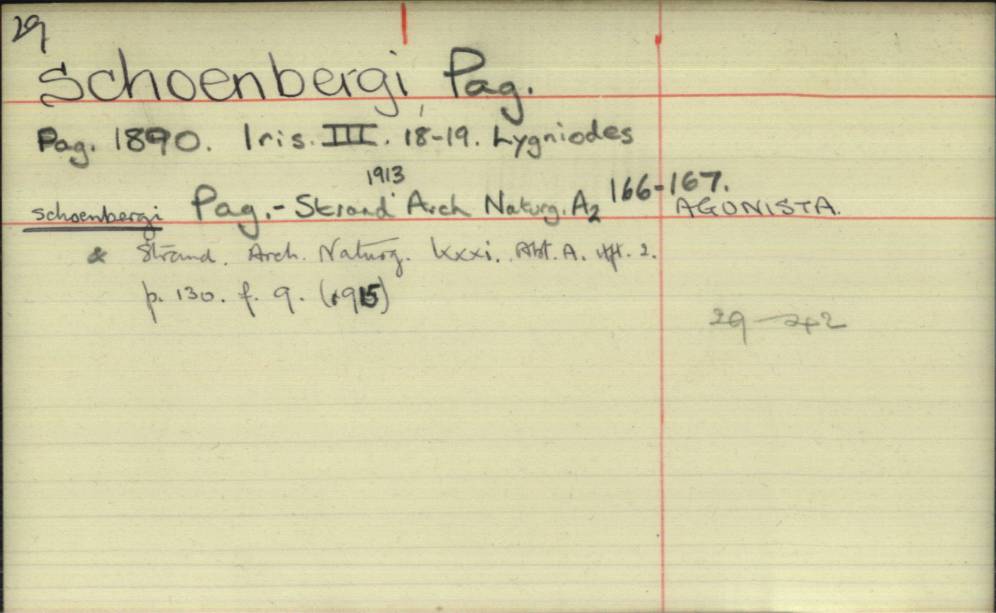 29
Schoenbergi, Pag.
Pag. 1890. Iris. III. 18-19. Lygniodes
schoenbergi Pag.- Strand 1913 Arch Naturg. A2 166-167. AGONISTA.
& Strand. Arch. Naturg. lxxxi. Abt. A. Hft. 2.
p. 130. f. 9. (1915)
29